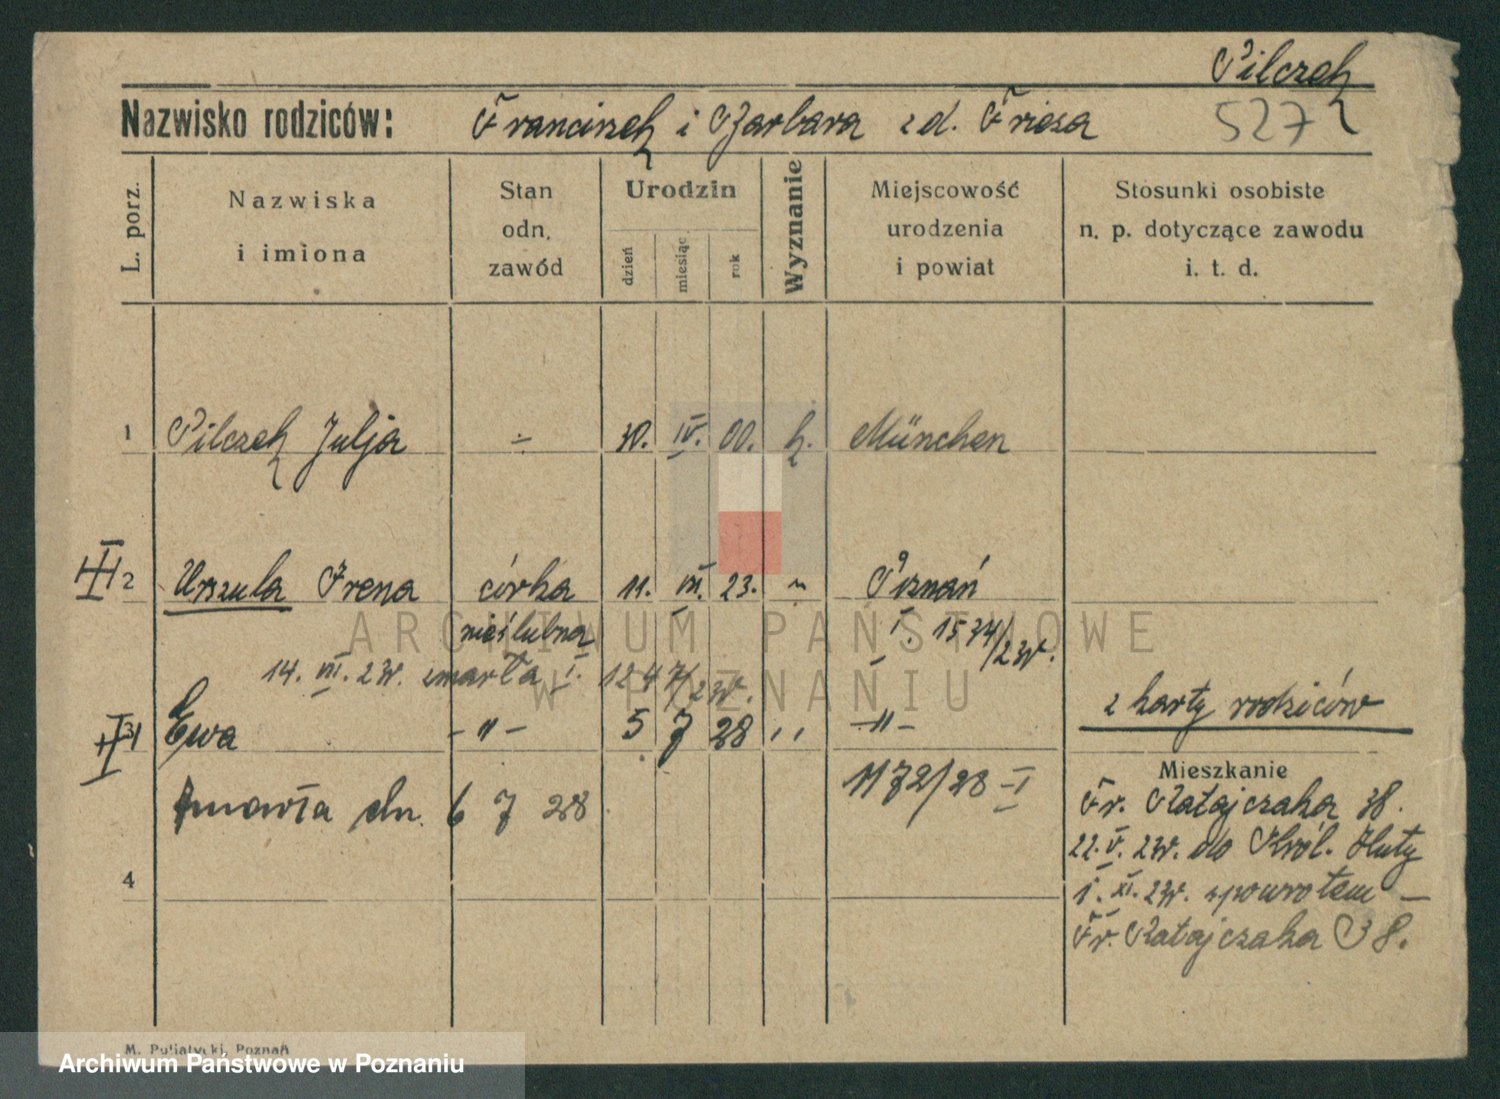 Pilczek
Nazwisko rodziców: Franciszek i Barbara z d. Friesa 527
L. porz.
Nazwiska i imiona
Stan odn. zawód
Urodzin
dzień
miesiąc
rok
Wyznanie
Miejscowość urodzenia i powiat
Stosunki osobiste n. p. dotyczące zawodu i. t. d.
1 Pilczek Julja – 30. IV. 00. k. München
2 Urszula Irena córka 11. VII. 23. " Poznań
nieślubna I. 1534/23r.
14. VIII. 23r. zmarła I. 1247/23r.
z karty rodziców
3 Ewa –"– 5 7 28 " –"–
Mieszkanie
zmarła dn. 6 7 28 1172/28 – I
Fr. Ratajczaka 38.
22. V. 23r. do Król. Huty
1. XI. 23r. spowrotem –
4
Fr. Ratajczaka 38.
M. Putiatycki, Poznań
ARCHIWUM PAŃSTWOWE
W POZNANIU
Archiwum Państwowe w Poznaniu